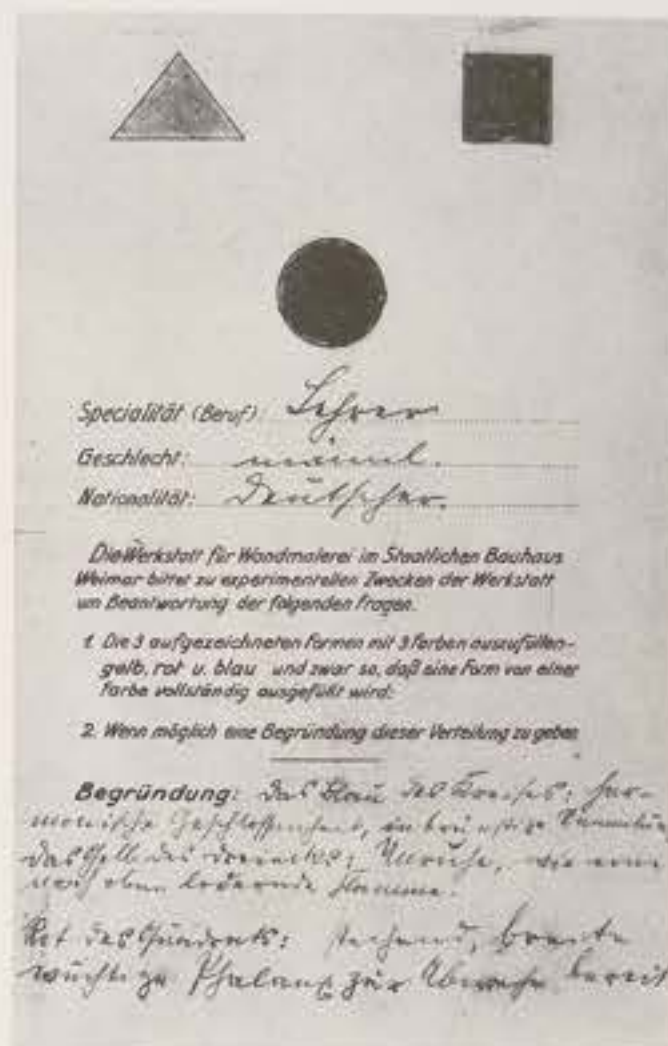 Specialität (Beruf): Lehrer
Geschlecht: männl.
Nationalität: Deutscher.
Die Werkstatt für Wandmalerei im Staatlichen Bauhaus
Weimar bittet zu experimentellen Zwecken der Werkstatt
um Beantwortung der folgenden Fragen.
1. Die 3 aufgezeichneten Formen mit 3 Farben auszufüllen-
gelb, rot u. blau und zwar so, daß eine Form von einer
Farbe vollständig ausgefüllt wird:
2. Wenn möglich eine Begründung dieser Verteilung zu geben
Begründung: Das Blau des Kreises: har-
monische Geschlossenheit, inbrünstige
Das Gelb des Dreiecks: Unruhe, wie eine
nach oben lodernde Flamme.
Rot des Quadrats: stehend, breite
wuchtige Phalanx zur Abwehr bereit